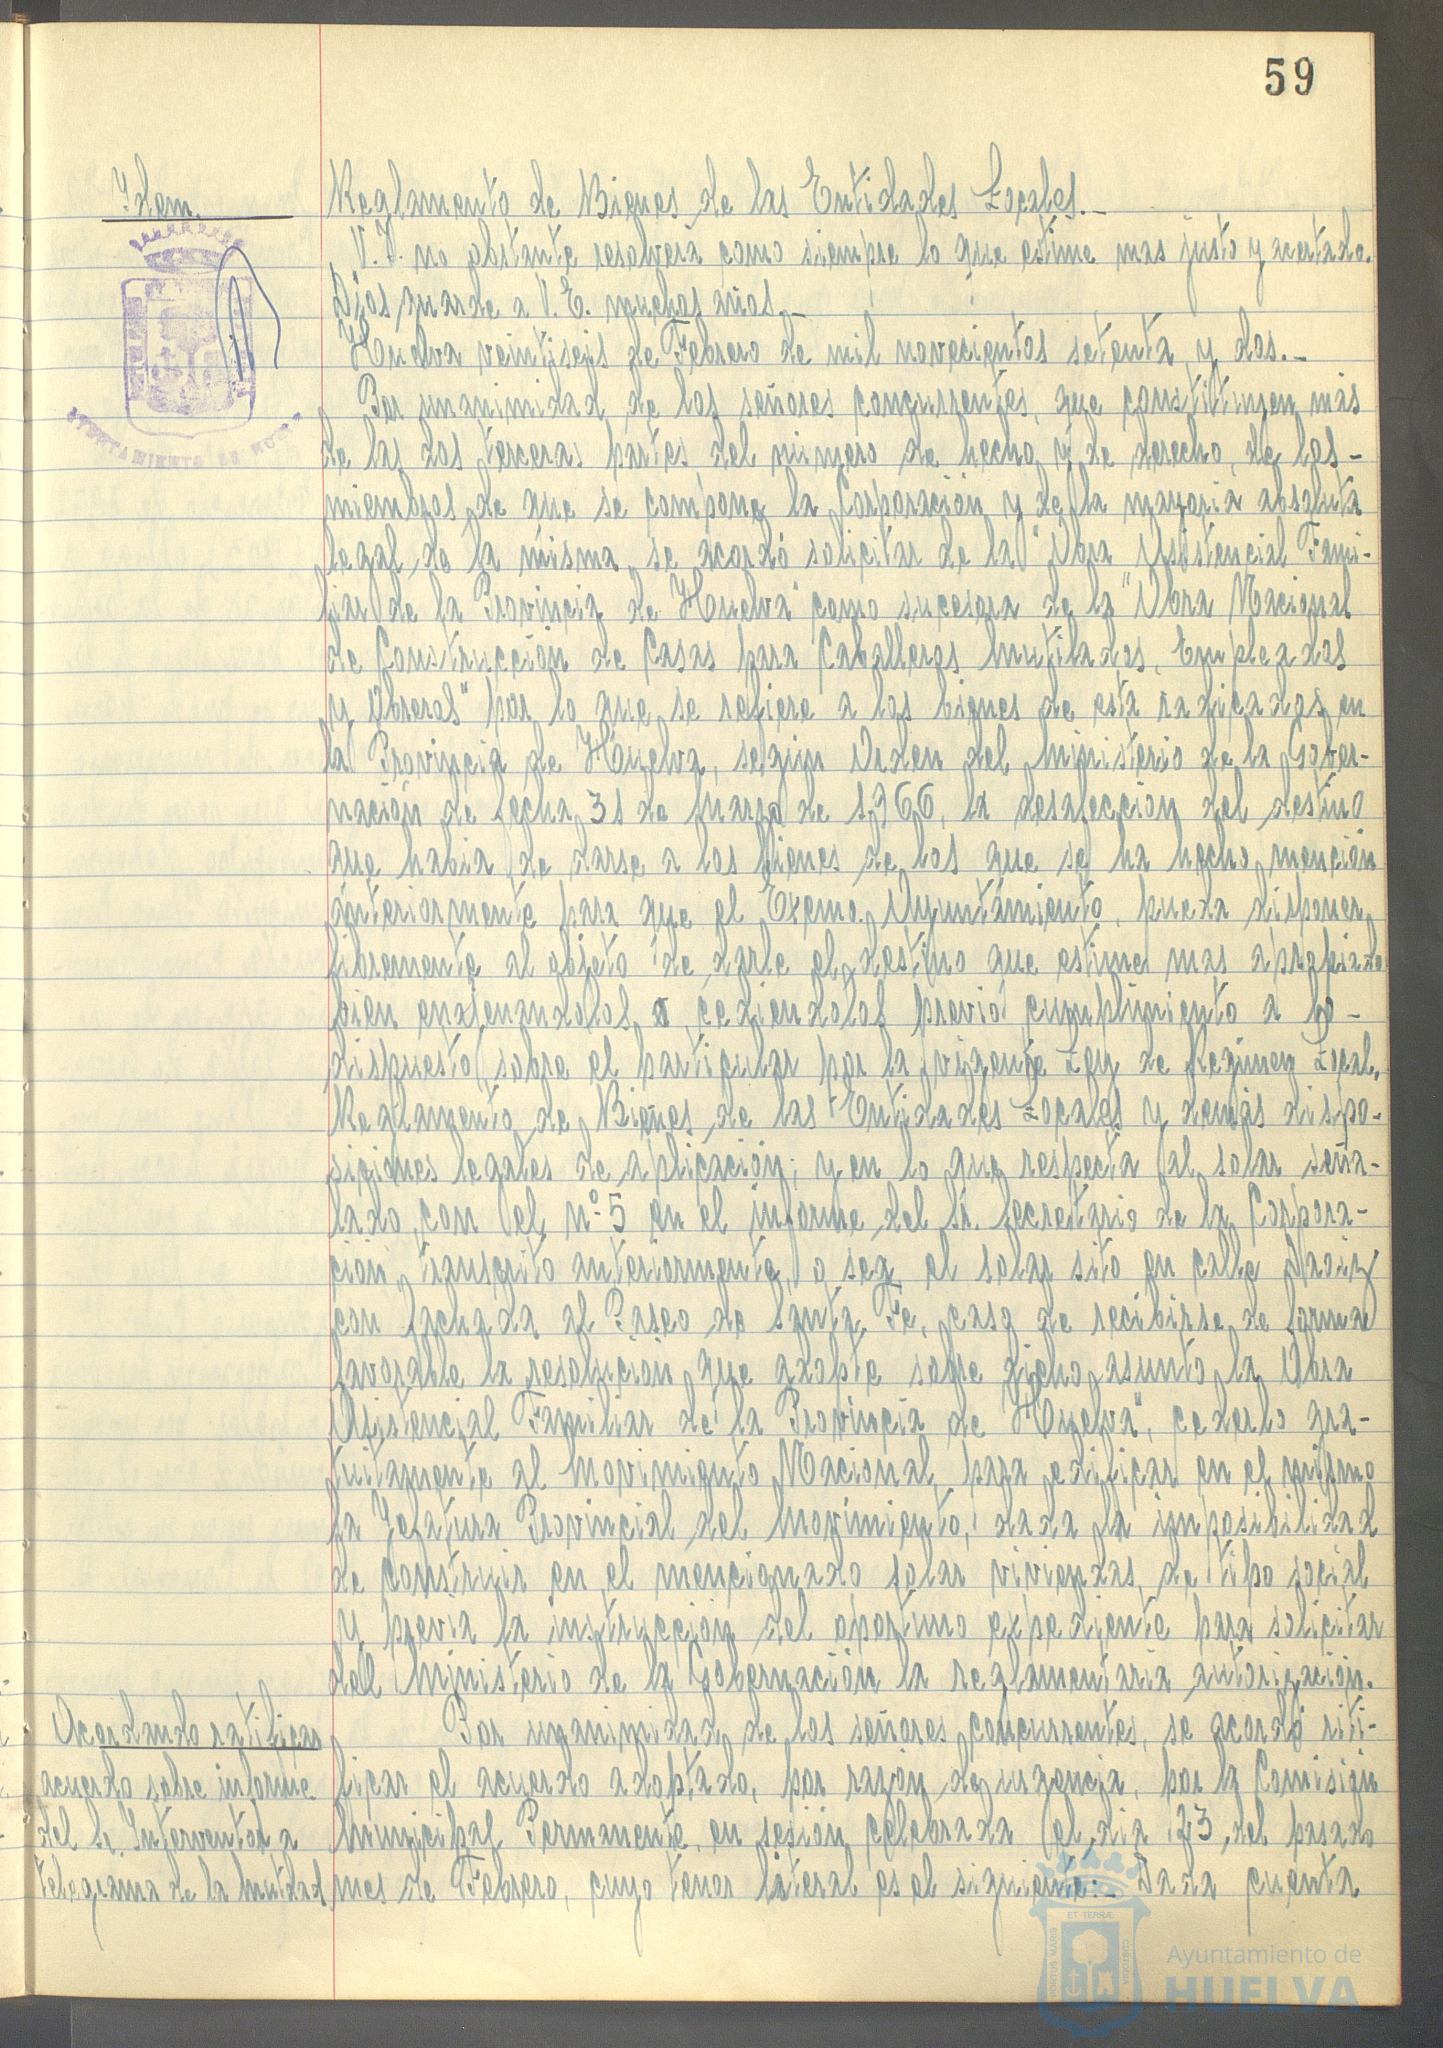 59
Idem.
Reglamento de Bienes de las Entidades Locales.-
V.I. no obstante resolverá como siempre lo que estime mas justo y acertado.
Dios guarde a V.E. muchos años.-
Huelva veintiseis de Febrero de mil novecientos setenta y dos.-
Por unanimidad de los señores concurrentes, que constituyen más
de las dos terceras partes del número de hecho y de derecho, de los-
miembros de que se compone la Corporación y de la mayoria absoluta
legal de la misma, se acordó solicitar de la "Obra Asistencial Fami-
liar de la Provincia de Huelva" como sucesora de la "Obra Nacional
de Construcción de Casas para Caballeros Mutilados, Empleados
y Obreros" por lo que se refiere a los bienes de esta radicados en
la Provincia de Huelva, según Orden del Ministerio de la Gober-
nación de fecha 31 de Marzo de 1.966, la desafección del destino
que habia de darse a los bienes de los que se ha hecho mención
anteriormente para que el Excmo. Ayuntamiento, pueda disponer
libremente al objeto de darle el destino que estime mas apropiado
bien enajenandolos o, cediendolos previo cumplimiento a lo-
dispuesto sobre el particular por la vigente Ley de Regimen Local,
Reglamento de Bienes de las Entidades Locales y demás dispo-
siciones legales de aplicación; y en lo que respecta al solar seña-
lado con el nº 5 en el informe del Sr. Secretario de la Corpora-
ción, transcrito anteriormente, o sea el solar sito en calle Daoiz
con fachada al Paseo de Santa Fe, caso de recibirse de forma
favorable la resolución que adopte sobre dicho asunto la Obra
Asistencial Familiar de la Provincia de Huelva", cederlo gra-
tuitamente al Movimiento Nacional para edificar en el mismo
la Jefatura Provincial del Movimiento, dada la imposibilidad
de construir en el mencionado solar viviendas de tipo social
y previa la instrucción del oportuno expediente para solicitar
del Ministerio de la Gobernación la reglamentaria autorización.
Acordando ratificar
acuerdo sobre informe
del Sr. Interventor a
telegrama de la Mutdad
Por unanimidad de los señores concurrentes, se acordó rati-
ficar el acuerdo adoptado, por razón de urgencia, por la Comisión
Municipal Permanente, en sesión celebrada el dia 23, del pasado
mes de Febrero, cuyo tenor literal es el siguiente:- Dada cuenta
AYUNTAMIENTO DE HUELVA
ET TERRÆ
PORTUS MARIS
CUSTODIA
Ayuntamiento de
HUELVA